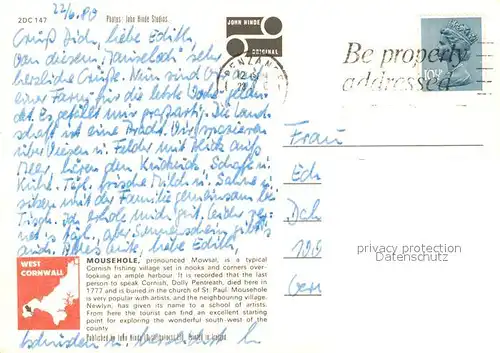 2DC 147
22/6.80
Photos: John Hinde Studios.
JOHN HINDE
ORIGINAL
Be properly
addressed
Grüß Dich, liebe Edith,
von diesem „Mauseloch" sehr
herzliche Grüße. Nun sind
einer Farm für die letzte
Es gefällt mir großartig. Die Land-
schaft ist eine Pracht. Wir spazieren
über Wiesen u. Felder mit Blick aufs
Meer, hören den Kuckuck, Schafe u.
Kühe. Tägl. frische Milch u. Sahne u.
sitzen mit der Familie gemeinsam bei
Tisch. Ich erhole mich gut. Leider
net's tägl. aber Sonnenschein gibt's
auch. liebe Edith,
Frau
Ed
privacy protection
Datenschutz
WEST
CORNWALL
MOUSEHOLE, pronounced Mowsal, is a typical
Cornish fishing village set in nooks and corners over-
looking an ample harbour. It is recorded that the last
person to speak Cornish, Dolly Pentreath, died here in
1777 and is buried in the church of St. Paul. Mousehole
is very popular with artists, and the neighbouring village,
Newlyn, has given its name to a school of artists.
From here the tourist can find an excellent starting
point for exploring the wonderful south-west of the
county
Published by John Hinde